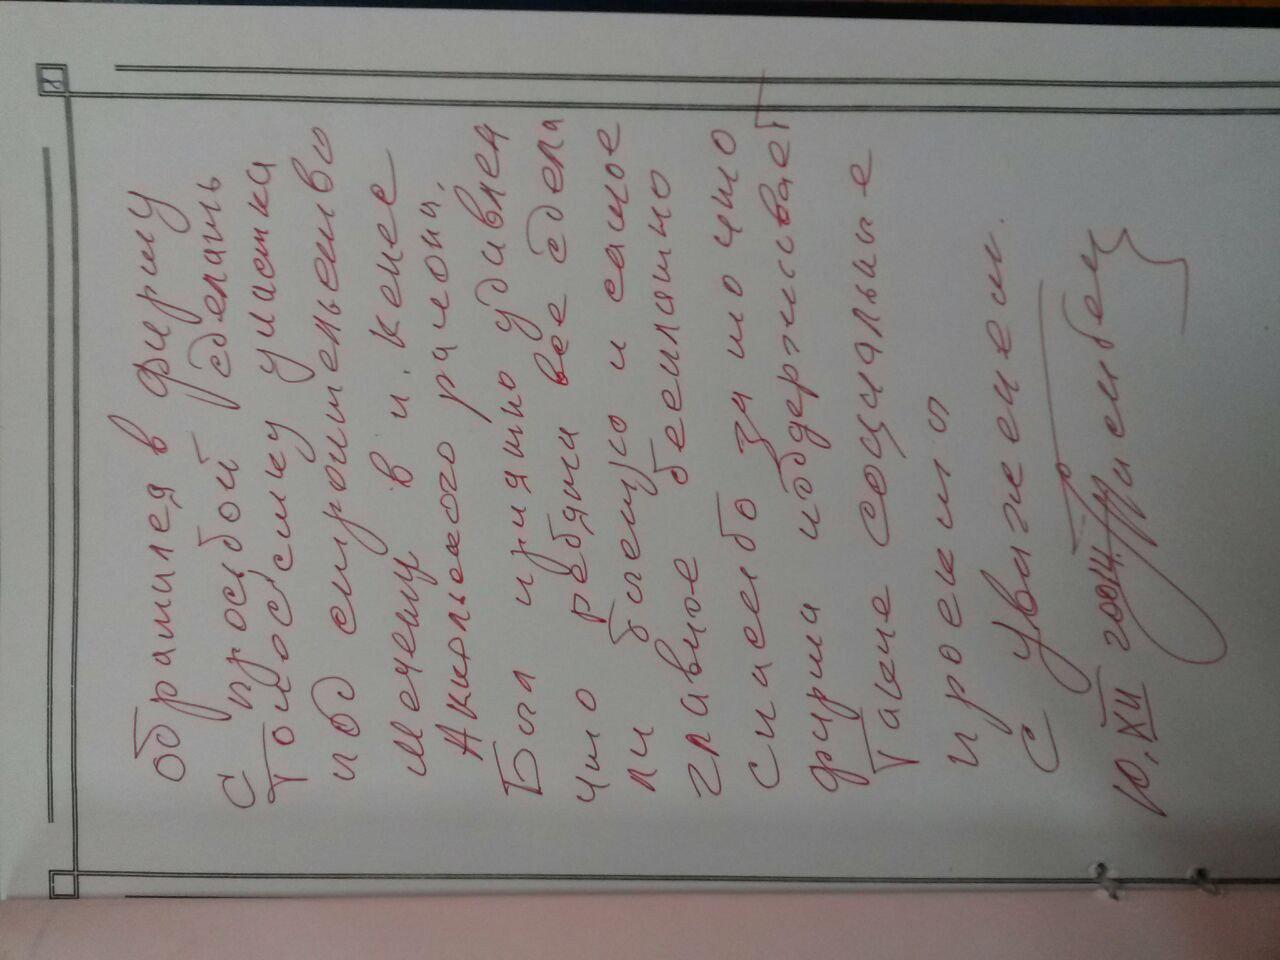 Обратился в фирму
с просьбой сделать
Топос'ьмку участка
под строительство
мечети в п. Кенес
Аккольского района.
Был приятно удивлен
что ребята все сдела
ли быстро и самое
главное бесплатно
Спасибо за то что
фирма поддерживает
Такие социальные
проекты
С уважением.
10.XII 2004г.